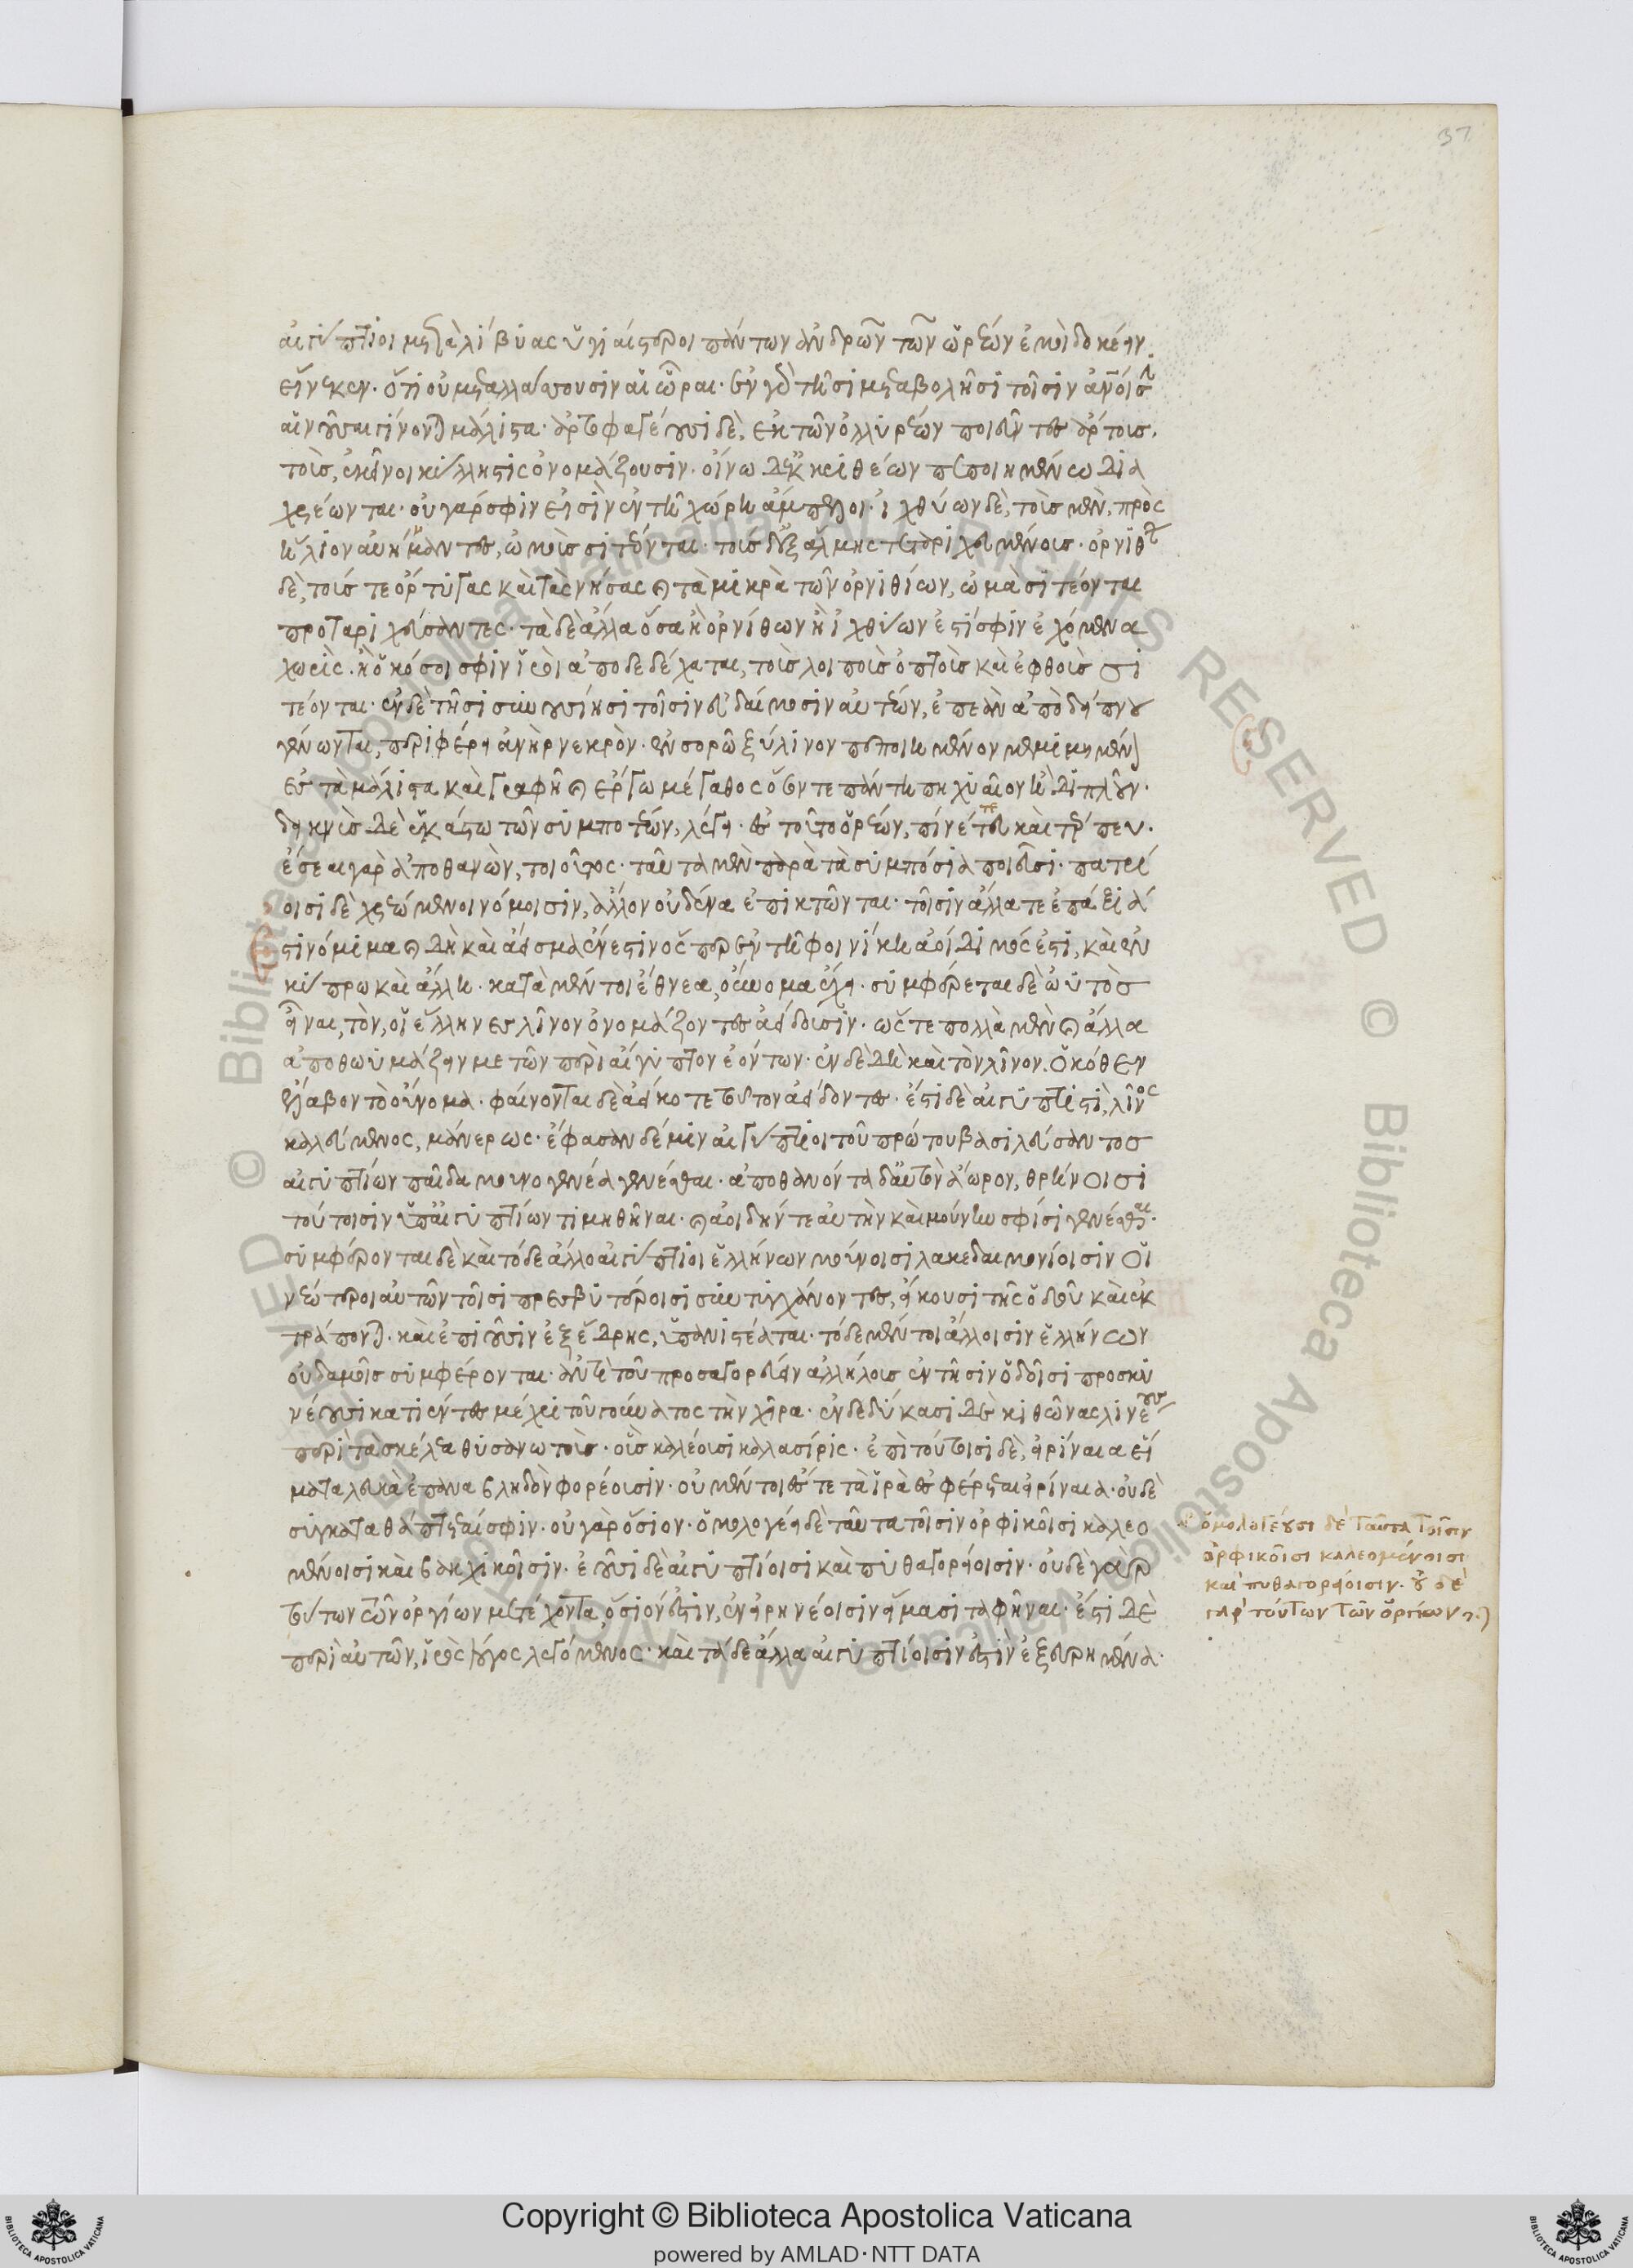 37
αἰγύπτιοι μετὰ λίβυας ὑγιαίστεροι πάντων ἀνδρῶν τῶν ὡρέων ἐμοὶ δοκέειν
εἵνεκεν. ὅτι οὐ μεταλλάσσουσιν αἱ ὧραι. ἐν γὰρ τῆσι μεταβολῆσι τοῖσιν ἀνοῖσι
αἱ νοῦσοι γίνονται μάλιστα. ἀρτοφαγέουσι δὲ, ἐκ τῶν ὀλλυρέων ποιεῦντες ἄρτους.
τοὺς, ἐκεῖνοι κυλλήστις ὀνομάζουσιν. οἴνω δ' ἐκ κριθέων πεποιημένω δια
χρέωνται. οὐ γάρ σφιν εἰσὶν ἐν τῆ χώρη ἄμπελοι. ἰχθύων δὲ, τοὺς μὲν, πρὸς
ἥλιον αὐήναντες, ὠμοὺς σιτέονται. τοὺς δ' ἐξ ἅλμης τεταριχευμένους. ὀρνίθων
δὲ, τούς τε ὄρτυγας καὶ τὰς νήσσας καὶ τὰ μικρὰ τῶν ὀρνιθίων, ὠμὰ σιτέονται
προταριχεύσαντες. τὰ δὲ ἄλλα ὅσα ἢ ὀρνίθων ἢ ἰχθύων ἐστί σφιν ἐχόμενα
χωρὶς. ἢ ὁκόσοι σφιν ἱροὶ ἀποδεδέχαται, τοὺς λοιποὺς ὀπτοὺς καὶ ἑφθοὺς σι
τέονται. ἐν δὲ τῆσι συνουσίησι τοῖσιν εὐδαίμοσιν αὐτέων, ἐπεὰν ἀπὸ δείπνου
γένωνται, περιφέρει ἀνὴρ νεκρὸν. ἐν σορῶ ξύλινον πεποιημένον μεμιμημένον
ἐς τὰ μάλιστα καὶ γραφῆ καὶ ἔργω μέγαθος ὅσον τε πάντη πηχυαῖον ἢ δίπηχυν.
δεικνὺς δὲ ἑκάστω τῶν συμποτέων, λέγει. ἐς τοῦτο ὁρέων, πῖνέ τε καὶ τέρπευ.
ἔσεαι γὰρ ἀποθανὼν, τοιοῦτος. ταῦτα μὲν παρὰ τὰ συμπόσια ποιεῦσι. πατρί
οισι δὲ χρεώμενοι νόμοισιν, ἄλλον οὐδένα ἐπικτῶνται. τοῖσιν ἄλλα τε ἐπάξιά
ἐστι νόμιμα καὶ δὴ καὶ ἄεισμα ἕν ἐστι λῖνος ὅσπερ ἔν τε φοινίκη ἀοίδιμός ἐστι, καὶ ἐν
κύπρω καὶ ἄλλη. κατὰ μέντοι ἔθνεα, οὔνομα ἔχει. συμφέρεται δὲ ὡυτὸς
εἶναι, τὸν, οἱ ἕλληνες λῖνον ὀνομάζοντες ἀείδουσιν. ὥστε πολλὰ μὲν καὶ ἄλλα
ἀποθωυμάζειν με τῶν περὶ αἴγυπτον ἐόντων. ἐν δὲ δὴ καὶ τὸν λῖνον. ὁκόθεν
ἔλαβον τὸ οὔνομα. φαίνονται δὲ ἀεί κοτε τοῦτον ἀείδοντες. ἔστι δὲ αἰγυπτιστὶ, λῖνος
καλεύμενος, μάνερως. ἔφασαν δέ μιν αἰγύπτιοι τοῦ πρώτου βασιλεύσαντος
αἰγυπτίων παῖδα μουνογενέα γενέσθαι. ἀποθανόντα δ' αὐτὸν ἄωρον, θρήνοισι
τούτοισιν ὑπ' αἰγυπτίων τιμηθῆναι. καὶ ἀοιδήν τε αὐτὴν καὶ μούνην σφίσι γενέσθαι.
συμφέρονται δὲ καὶ τόδε ἄλλο αἰγύπτιοι ἑλλήνων μούνοισι λακεδαιμονίοισιν οἱ
νεώτεροι αὐτῶν τοῖσι πρεσβυτέροισι συντυγχάνοντες, εἴκουσι τῆς ὁδοῦ καὶ ἐκ
τράπονται. καὶ ἐπιοῦσιν ἐξ ἕδρης, ὑπανιστέαται. τόδε μέντοι ἄλλοισιν ἑλλήνων
οὐδαμοῖς συμφέρονται. ἀντὶ τοῦ προσαγορεύειν ἀλλήλους ἐν τῆσιν ὁδοῖσι προσκυ
νέουσι κατιέντες μέχρι τοῦ γούνατος τὴν χεῖρα. ἐνδεδύκασι δὲ κιθῶνας λινέους
περὶ τὰ σκέλεα θυσανωτοὺς. οὓς καλέουσι καλασίρις. ἐπὶ τούτοισι δὲ, εἰρίνεα εἵ
ματα λευκὰ ἐπαναβληδὸν φορέουσιν. οὐ μέντοι ἔς τε τὰ ἱρὰ ἐσφέρεται εἰρίνεα. οὐδὲ
συγκαταθάπτεταί σφιν. οὐ γὰρ ὅσιον. ὁμολογέει δὲ ταῦτα τοῖσιν ὀρφικοῖσι καλεο
μένοισι καὶ βακχικοῖσιν. ἐοῦσι δὲ αἰγυπτίοισι καὶ πυθαγορείοισιν. οὐδὲ γὰρ
τούτων τῶν ὀργίων μετέχοντα, ὅσιόν ἐστιν, ἐν εἰρινέοισιν εἵμασι ταφῆναι. ἔστι δὲ
περὶ αὐτῶν, ἱρὸς λόγος λεγόμενος. καὶ τάδε ἄλλα αἰγυπτίοισίν ἐστιν ἐξευρημένα.
ὁμολογέουσι δὲ ταῦτα τοῖσιν
ὀρφικοῖσι καλεομένοισι
καὶ πυθαγορείοισιν. οὐδὲ
γὰρ τούτων τῶν ὀργίων
Copyright © Biblioteca Apostolica Vaticana
powered by AMLAD·NTT DATA